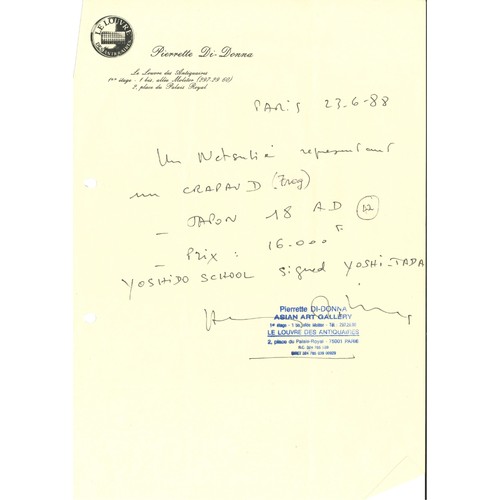 LE LOUVRE
DES ANTIQUAIRES
Pierrette Di-Donna
Le Louvre des Antiquaires
1er étage - 1 bis, allée Molster (297.29.60)
2, place du Palais Royal
PARIS 23-6-88
Un Netsuké representant
un CRAPAUD (Frog)
- JAPON 18 AD
- PRIX : 16.000 F
YOSHIDO SCHOOL Signed YOSHI-TADA
Pierrette DI-DONNA
ASIAN ART GALLERY
LE LOUVRE DES ANTIQUAIRES
2, place du Palais-Royal - 75001 PARIS